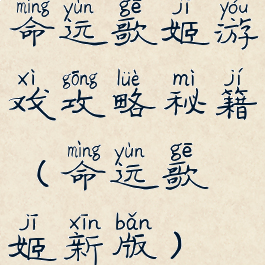 mìng yùn gē jī yóu
命运歌姬游
xì gōng lüè mì jí
戏攻略秘籍
mìng yùn gē
(命运歌
jī xīn bǎn
姬新版)